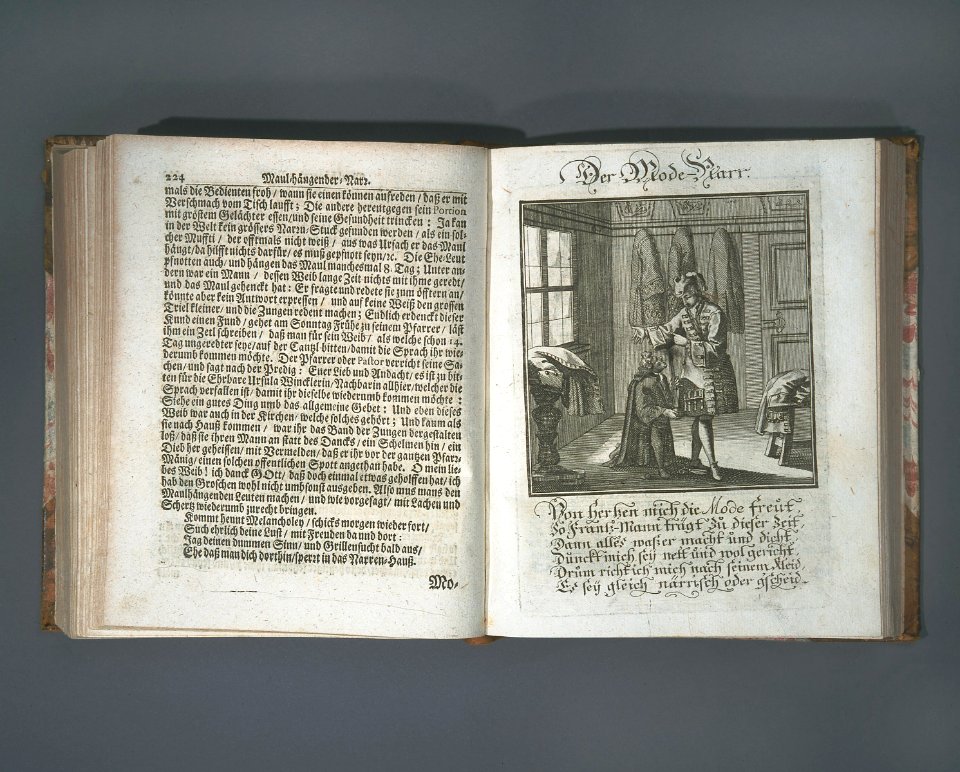 224 Maulhängender-Narr.
mals die Bedienten froh / wann sie einen können anfreden / daß er mit
Verschmach vom Tisch laufft; Die andere herentgegen sein Portion
mit gröstem Gelächter essen / und seine Gesundheit trincken: Ja kan
in der Welt kein grössers Narrn-Stuck gefunden werden / als ein sol-
cher Muffti / der offtmals nicht weiß / aus was Ursach er das Maul
hängt / da hilfft nichts darfür / es muß gepfnott seyn / ꝛc. Die Ehe-Leut
pfnotten auch / und hängen das Maul manchesmal 8. Tag; Unter an-
dern war ein Mann / dessen Weib lange Zeit nichts mit ihme geredt /
und das Maul gehenckt hat: Er fragte und redete sie zum öfftern an /
könnte aber kein Antwort erpressen / und auf keine Weiß den grossen
Triel kleiner / und die Zungen redent machen; Endlich erdenckt dieser
Kund einen Fund / gehet am Sonntag Frühe zu seinem Pfarrer / läst
ihm ein Zetl schreiben / daß man für sein Weib / als welche schon 14.
Tag ungeredter seye / auf der Cantzl bitten / damit die Sprach ihr wie-
derumb kommen möchte. Der Pfarrer oder Pastor verricht seine Sa-
chen / und sagt nach der Predig: Euer Lieb und Andacht / es ist zu bit-
ten für die Ehrbare Ursula Wincklerin / Nachbarin allhier / welcher die
Sprach verfallen ist / damit ihr dieselbe wiederumb kommen möchte:
Siehe ein gutes Ding umb das allgemeine Gebet: Und eben dieses
Weib war auch in der Kirchen / welche solches gehört; Und kaum als
sie nach Hauß kommen / war ihr das Band der Zungen dergestalten
loß / daß sie ihren Mann an statt des Dancks / ein Schelmen hin / ein
Dieb her geheissen / mit Vermelden / daß er ihr vor der gantzen Pfarr-
Mänig / einen solchen offentlichen Spott angethan habe. O mein lie-
bes Weib! ich danck GOtt / daß doch einmal etwas geholffen hat / ich
hab den Groschen wohl nicht umbsonst ausgeben. Also mus mans den
Maulhängenden Leuten machen / und wie vorgesagt / mit Lachen und
Schertz wiederumb zurecht bringen.
Kommt heunt Melancholey / schicks morgen wieder fort /
Such ehrlich deine Lust / mit Freuden da und dort:
Jag deinen dummen Sinn / und Grillensucht bald aus /
Ehe daß man dich dorthin / sperrt in das Narren-Hauß.
Mo-
Der Mode-Narr.
Von hertzen mich die Mode freut,
So Frantz-Mann trägt zu dieser Zeit,
Dann alles was er macht und dicht,
Dünckt mich sey nett und wol gericht,
Drum richt ich mich nach seinem Kleid,
Es sey gleich närrisch oder gscheid.